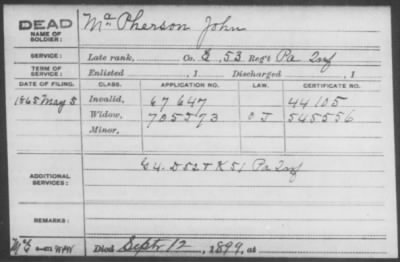 DEAD
NAME OF SOLDIER:
McPherson John
SERVICE:
Late rank, Co. E, 53 Reg't Pa Inf
TERM OF SERVICE:
Enlisted , 1 Discharged , 1
DATE OF FILING. CLASS. APPLICATION NO. LAW. CERTIFICATE NO.
1865 May 5 Invalid, 67 647 44105
Widow, 705573 O J 545556
Minor,
ADDITIONAL SERVICES:
K 51 Pa Inf
REMARKS:
Died Sept 12, 1899, at